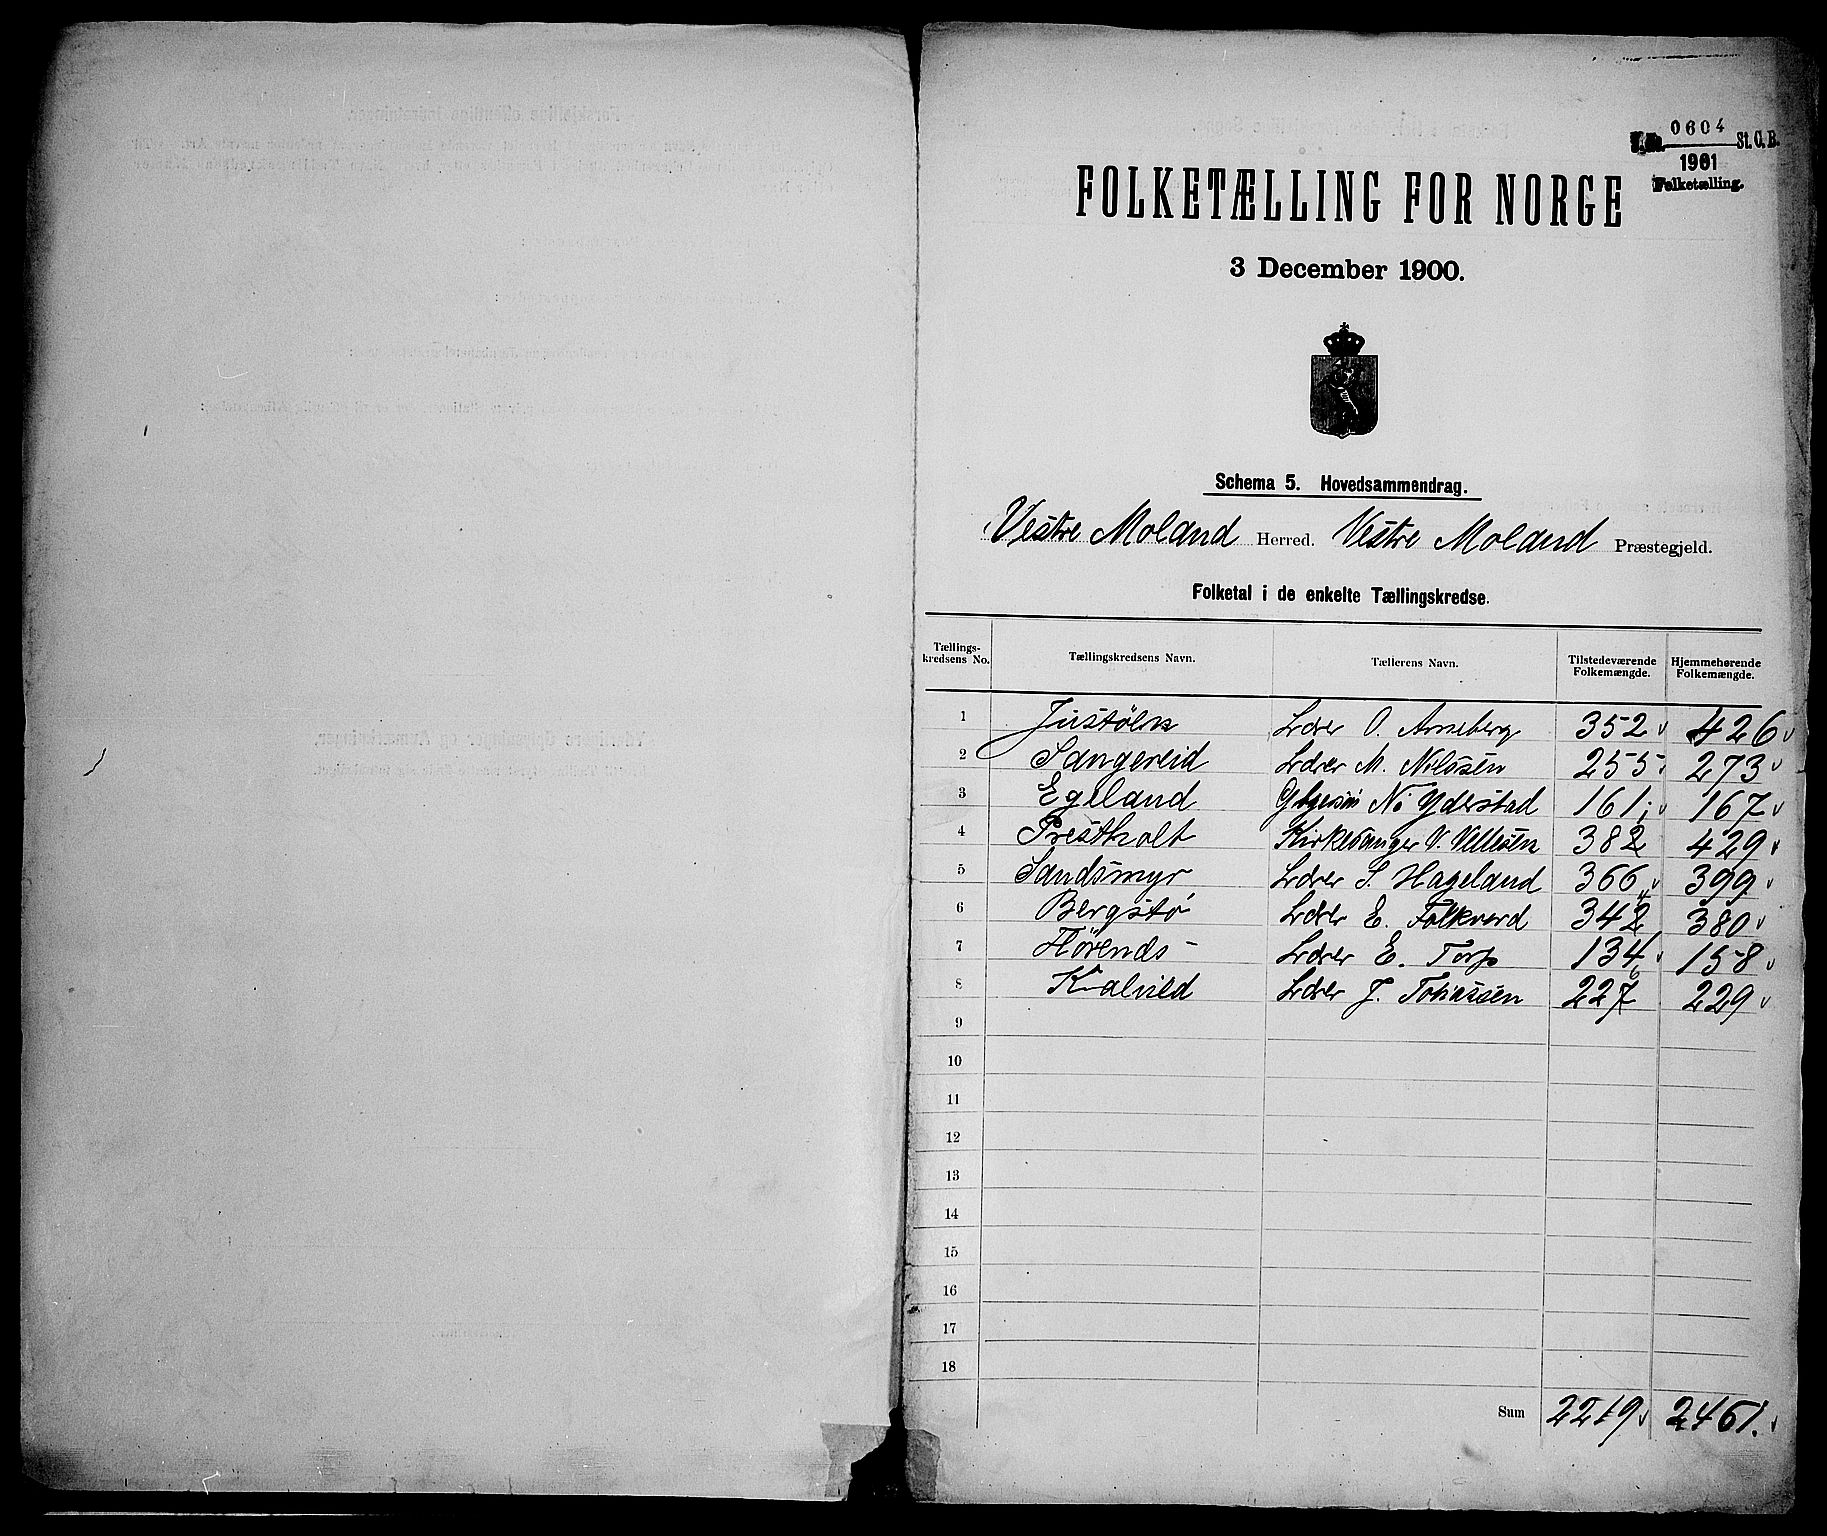 0604
J. No. St. C. B.
1901
Folketælling.
FOLKETÆLLING FOR NORGE
3 December 1900.
Schema 5. Hovedsammendrag.
Vestre Moland Herred. Vestre Moland Præstegjeld.
Folketal i de enkelte Tællingskredse.
Tællings-kredsens No. Tællingskredsens Navn. Tællerens Navn. Tilstedeværende Folkemængde. Hjemmehørende Folkemængde.
1 Justøen Lærer O. Arneberg 352 426
2 Sangereid Lærer M. Nilssen 255 273
3 Egeland No Yderstad 161 167
4 Prestholt Kirkesanger V. Vellesen 382 429
5 Sandsmyr Lærer S. Hageland 366 399
6 Bergstø Lærer E. Folkvord 342 380
7 Hørends Lærer E. Torp 134 158
8 Kalvild Lærer J. Tobiassen 227 229
9
10
11
12
13
14
15
16
17
18
Sum 2219 2461.